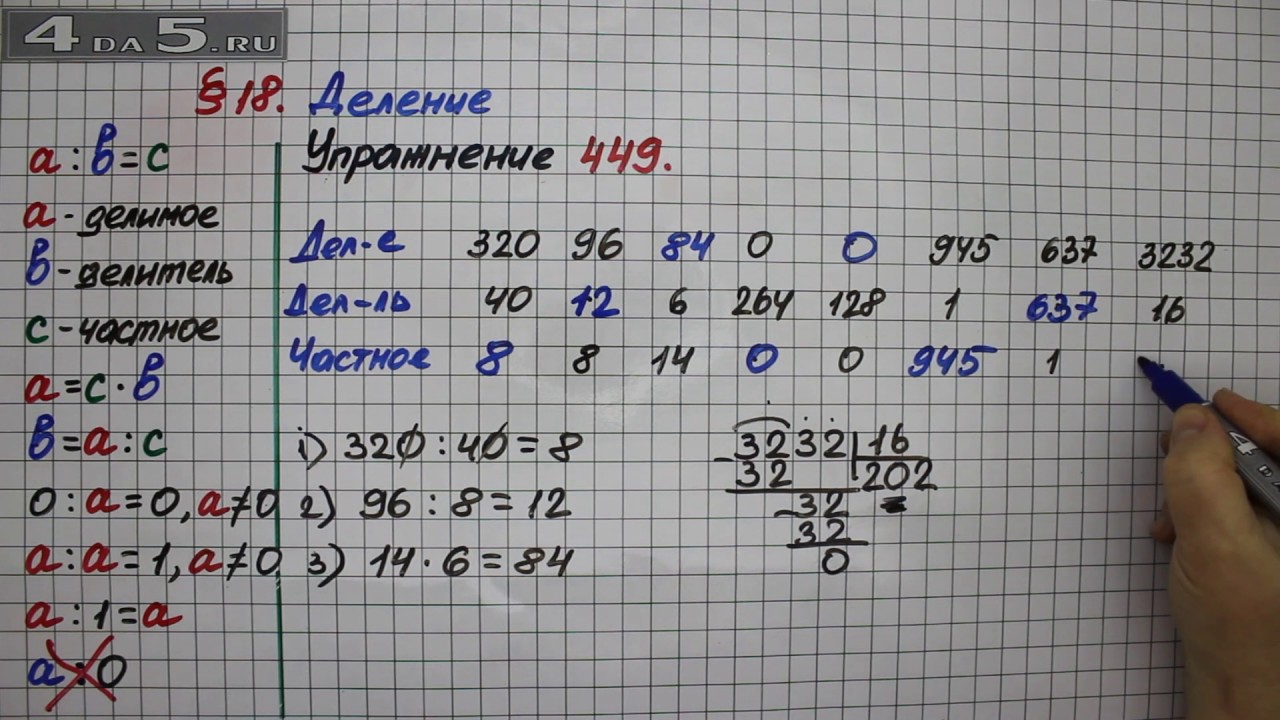 4 DA 5.RU
§ 18. Деление
Упражнение 449.
a : в = с
а - делимое
в - делитель
с - частное
а = с · в
в = а : с
0 : а = 0, а ≠ 0
а : а = 1, а ≠ 0
а : 1 = а
а : 0
Дел-е 320 96 84 0 0 945 637 3232
Дел-ль 40 12 6 264 128 1 637 16
Частное 8 8 14 0 0 945 1
1) 320 : 40 = 8
2) 96 : 8 = 12
3) 14 · 6 = 84
3232 16
- 32 202
- 32
32
0
4